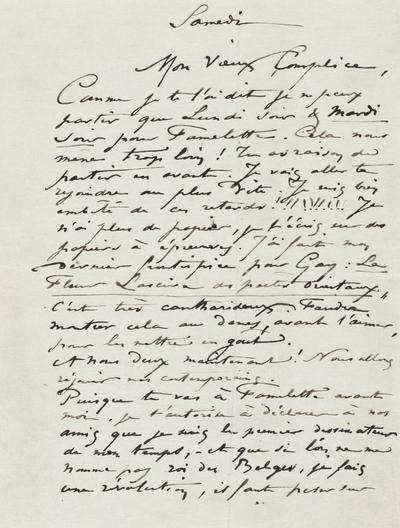 Samedi
Mon Vieux Complice,
Comme je te l'ai dit je ne peux
partir que Lundi soir & Mardi
soir pour Famelette. Cela nous
mène trop loin ! Tu as raison de
partir en avant. Je vais aller te
rejoindre au plus vite. Je suis bien
embêté de ces retards !!!
Je
n'ai plus de papier, je t'écris sur des
papiers à épreuves. J'ai fait mon
dernier frontispice pour Gay : La
Fleur Lascive des poètes Orientaux,
C'est très cantharideux. Faudra
montrer cela aux dames, avant l'aimer,
pour les mettre en goût.
A nous deux maintenant ! Nous allons
réjouir nos contemporains.
Puisque tu vas à Famelette avant
moi, je t'autorise à déclarer à nos
amis que je suis le premier dessinateur
de mon temps, - et que si l'on ne me
nomme pas roi des Belges, je fais
une révolution, il faut peser sur